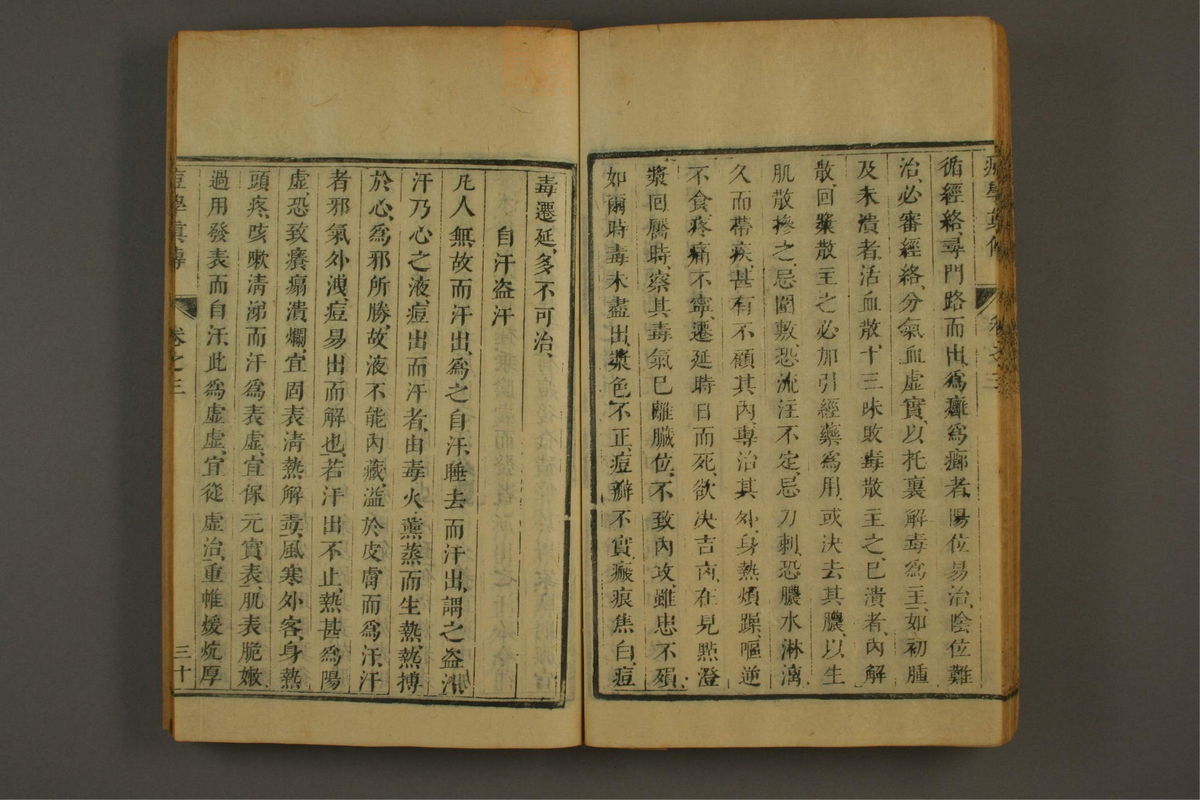 痘學眞傳
卷之三
循經絡、尋門路而出、爲癰爲癤者、陽位易治、陰位難
治、必審經絡、分氣血虛實、以托裏解毒爲主、如初腫
及未潰者、活血散十三味敗毒散主之、已潰者、內解
散、回漿散主之、必加引經藥爲用、或決去其膿、以生
肌散摻之、忌圍敷、恐流注不定、忌刀刺、恐膿水淋漓
久而帶疾、甚有不顧其內、專治其外、身熱煩躁、嘔逆
不食、疼痛不寧、遷延時日而死、欲决吉凶、在見㸃澄
漿囘靨時、察其毒氣已離臟位、不致內攻、雖患不殞、
如爾時毒未盡出、漿色不正、痘瓣不實、瘢痕焦白、痘
毒遷延、多不可治、
自汗盗汗
凡人無故而汗出、爲之自汗、睡去而汗出、謂之盗汗、
汗乃心之液、痘出而汗者、由毒火薰蒸而生熱、熱搏
於心、爲邪所勝、故液不能內藏、溢於皮膚而爲汗、汗
者邪氣外洩、痘易出而解也、若汗出不止、熱甚爲陽
虛、恐致癢癟潰爛、宜固表清熱解毒、風寒外客、身熱
頭疼、咳嗽清涕而汗爲表虛、宜保元實表、肌表脆嫩、
過用發表而自汗、此爲虛虛、宜從虛治、重帷煖炕厚
痘學眞傳
卷之三
三十